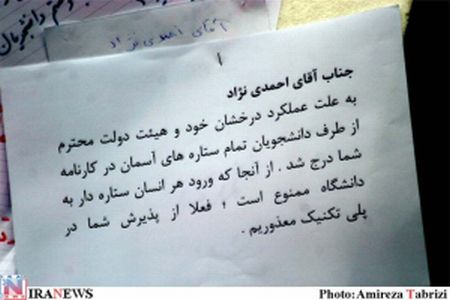 آقای احمدی نژاد
جناب آقای احمدی نژاد
به علت عملکرد درخشان خود و هیئت دولت محترم
از طرف دانشجویان تمام ستاره های آسمان در کارنامه
شما درج شد . از آنجا که ورود هر انسان ستاره دار به
دانشگاه ممنوع است ؛ فعلا از پذیرش شما در
پلی تکنیک معذوریم .
IRANEWS
Photo: Amireza Tabrizi